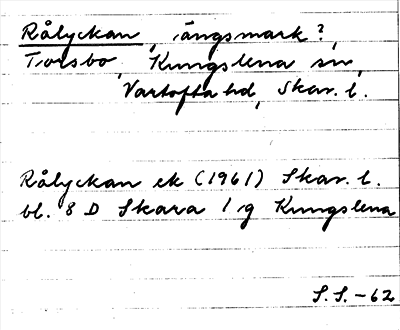 Rålyckan, ängsmark?,
Torsbo, Kungslena sn,
Vartofta hd, Skar. l.
Rålyckan ek (1961) Skar. l.
bl. 8 D Skara 1 g Kungslena
S.S. -62